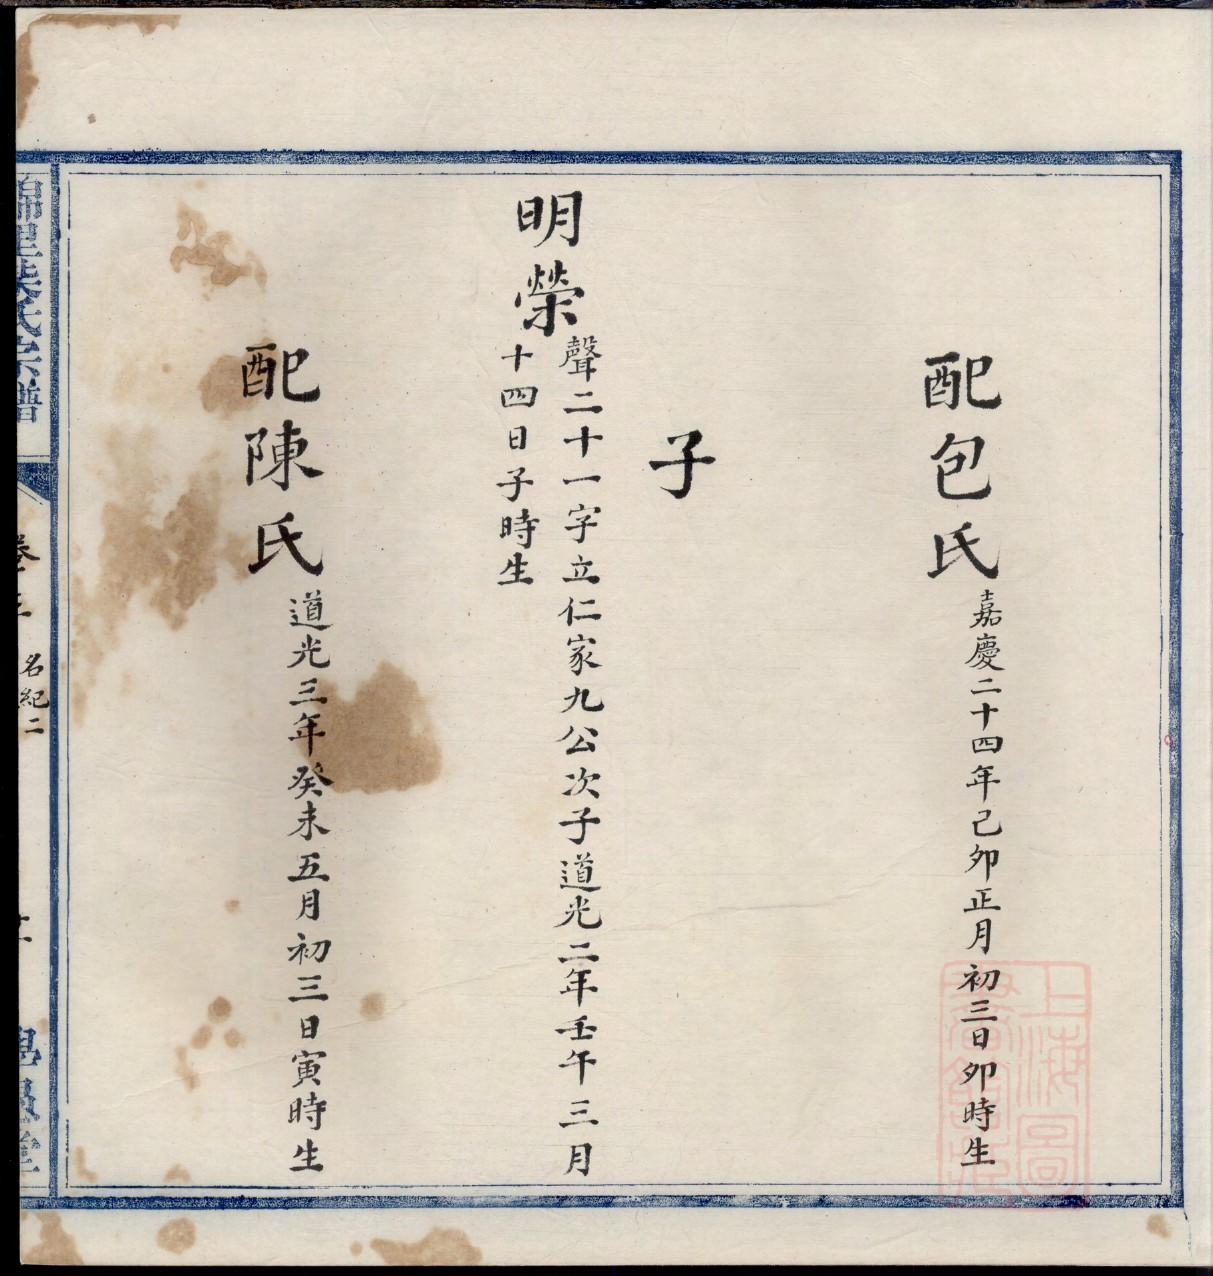 配包氏嘉慶二十四年己卯正月初三日卯時生
子
明榮聲二十一字立仁家九公次子道光二年壬午三月
十四日子時生
配陳氏道光三年癸未五月初三日寅時生
氏宗譜
名紀二
上海圖
書館藏